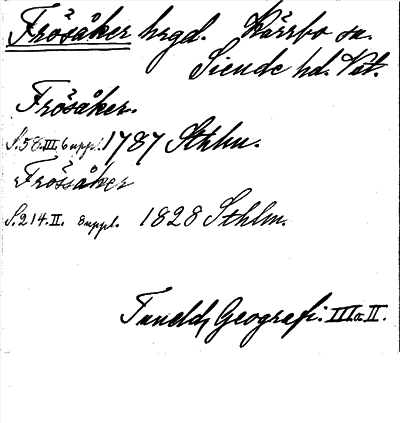 Frösåker hrgd. Kärrbo sn.
Siende hd. Vstm.
Frösåker.
S.58.III. 6 uppl. 1787 Sthlm.
Frössåker
S.214.II. 8 uppl. 1828 Sthlm.
Tunelds Geografi. III o. II.